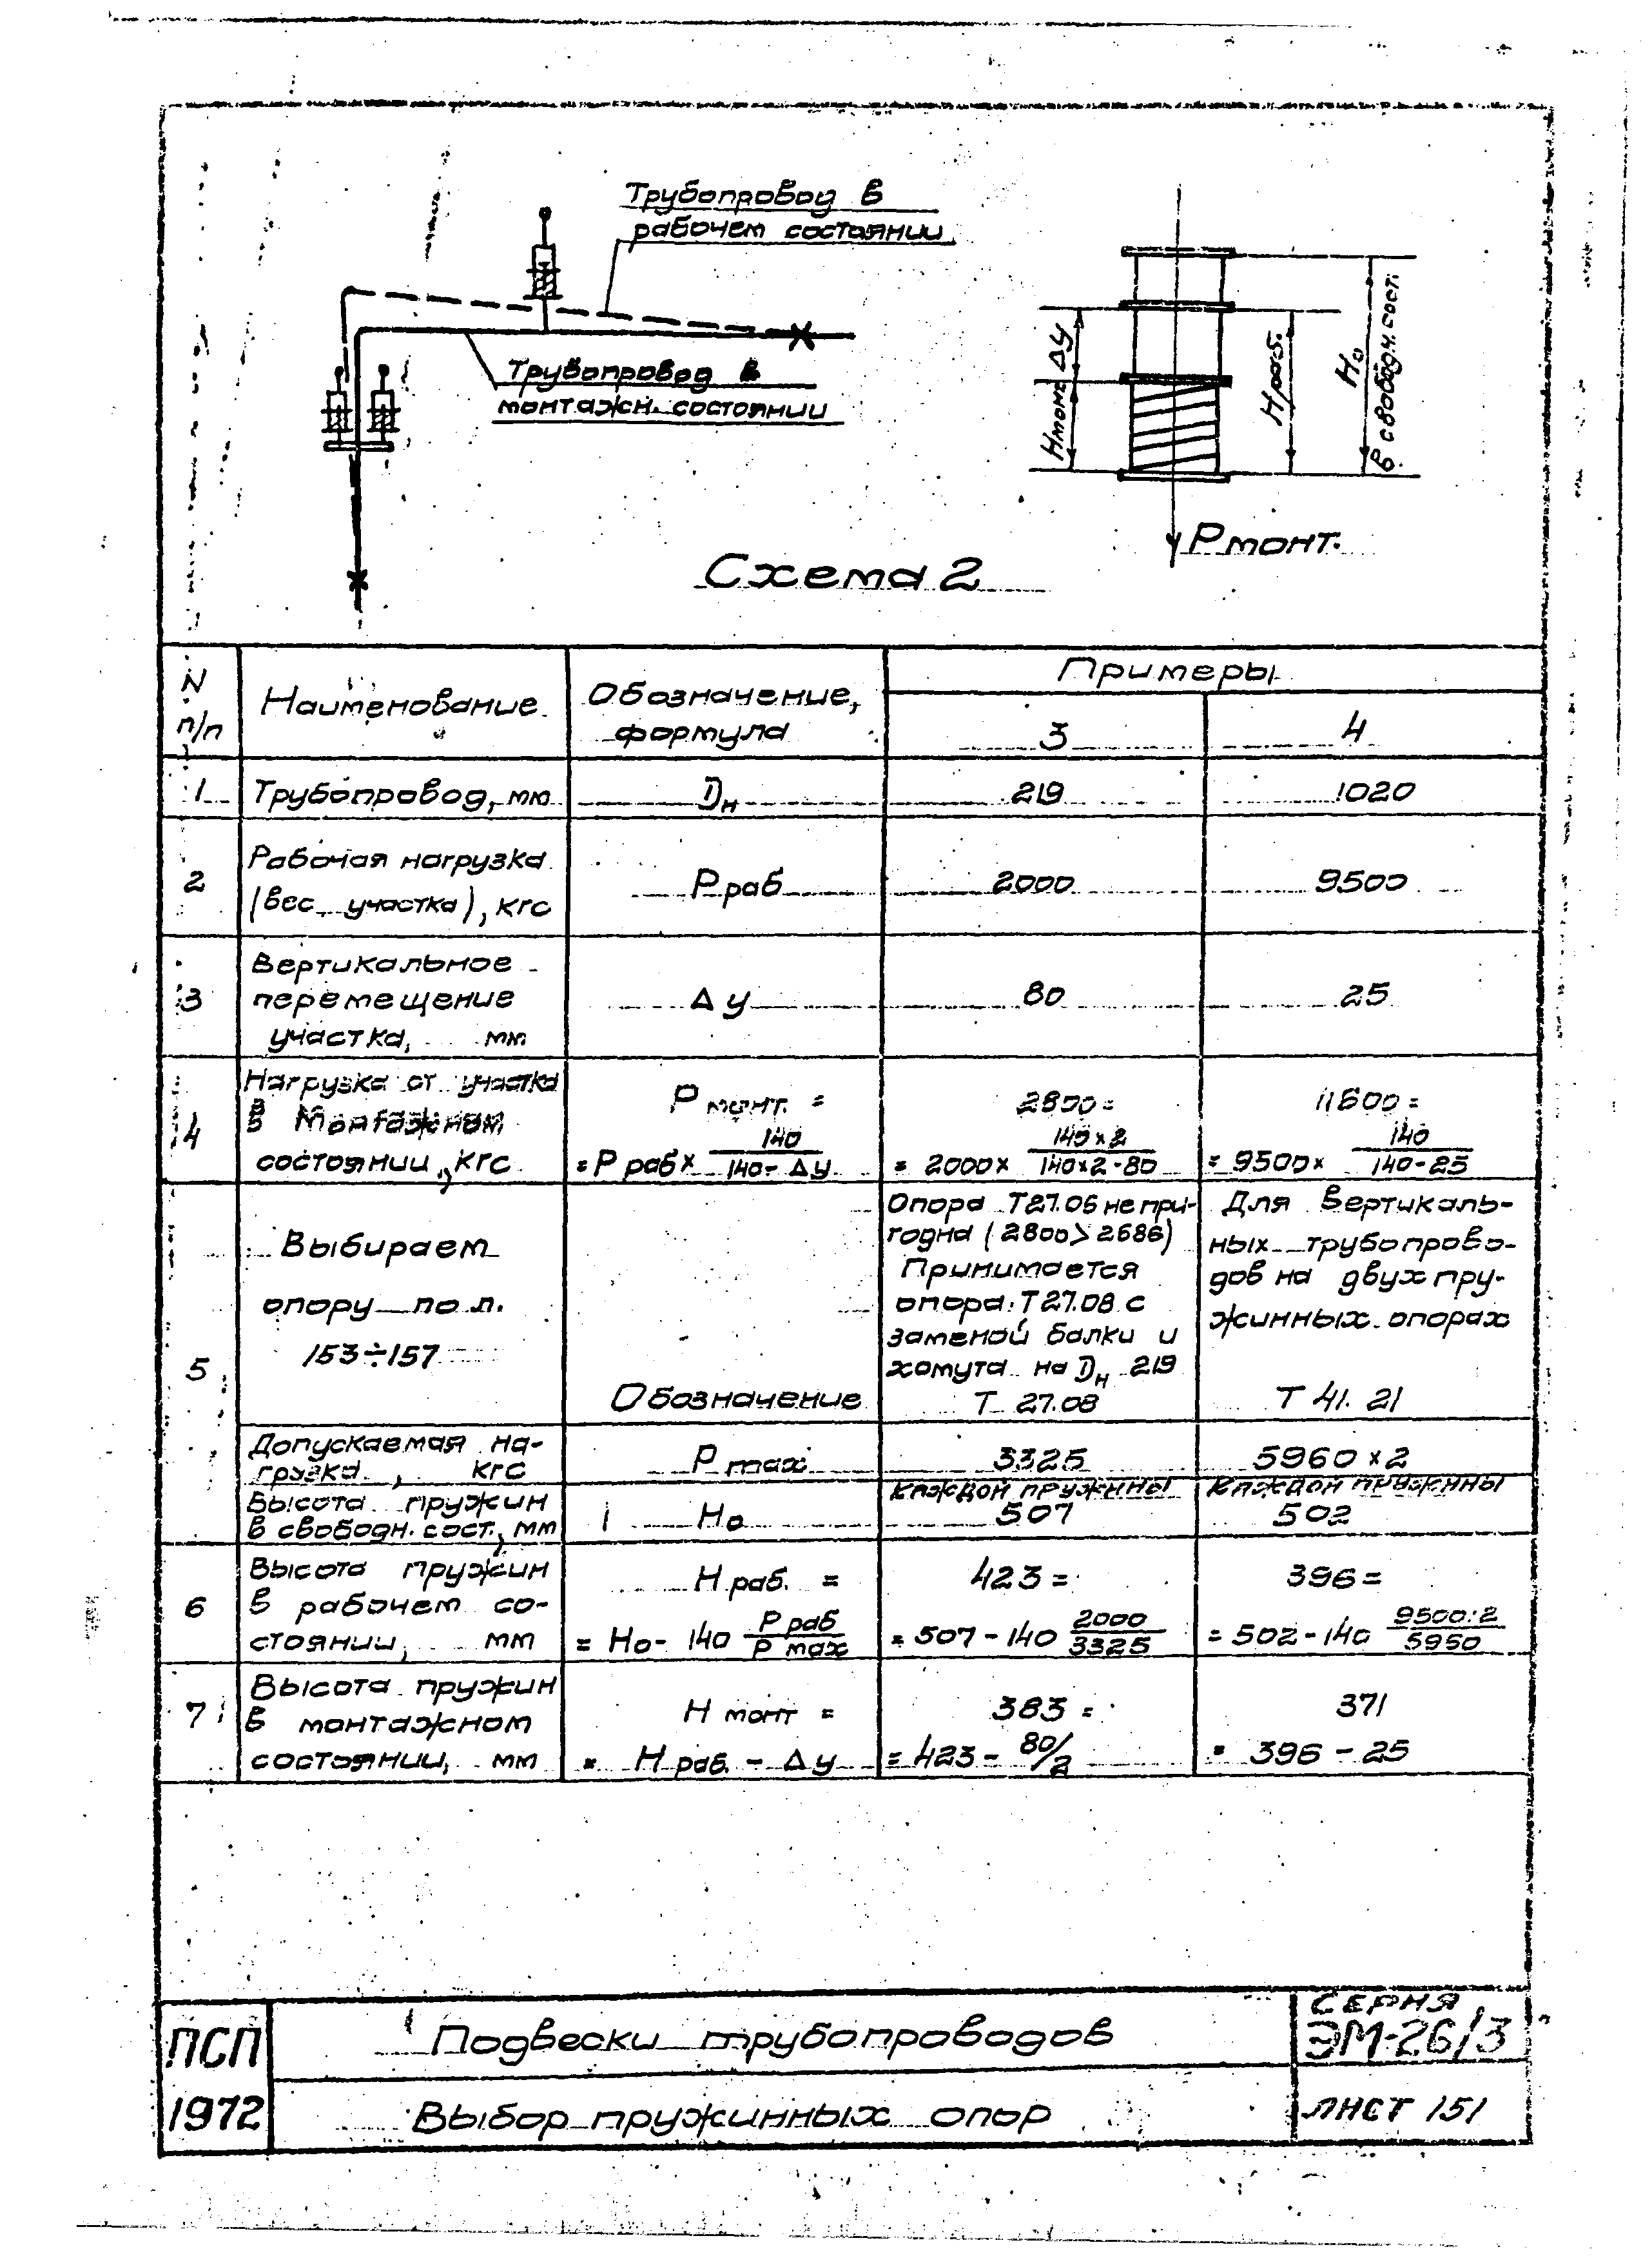 Трубопровод в
рабочем состоянии
Трубопровод в
монтажн. состоянии
Δу
Нмонт
Нраб.
Н₀
в свободн. сост.
Р монт.
Схема 2
N п/п
Наименование
Обозначение, формула
Примеры
3
4
1
Трубопровод, мм
Dн
219
1020
2
Рабочая нагрузка
(вес участка), кгс
Р раб
2000
9500
3
Вертикальное
перемещение
участка, мм
Δ у
80
25
4
Нагрузка от участка
в монтажном
состоянии, кгс
Р монт. =
= Р раб × 140 / 140 - Δу
2800 =
= 2000 × 140×2 / 140×2-80
11600 =
= 9500 × 140 / 140-25
5
Выбираем
опору по л.
153÷157
Обозначение
Опора Т27.06 не при-
годна (2800>2686)
Принимается
опора Т27.08 с
заменой балки и
хомута на Dн 219
Т 27.08
Для вертикаль-
ных трубопрово-
дов на двух пру-
жинных опорах
Т 41.21
Допускаемая на-
грузка, кгс
Р max
3325
5960 × 2
Высота пружин
в свободн. сост., мм
Но
каждой пружины
507
каждой пружины
502
6
Высота пружин
в рабочем со-
стоянии, мм
Н раб. =
= Но - 140 Р раб / Р max
423 =
= 507 - 140 2000 / 3325
396 =
= 502 - 140 9500:2 / 5950
7
Высота пружин
в монтажном
состоянии, мм
Н монт =
= Н раб. - Δ у
383 =
= 423 - 80/2
371
= 396 - 25
ПСП
1972
Подвески трубопроводов
Выбор пружинных опор
СЕРИЯ
ЭМ-26/3
ЛИСТ 151